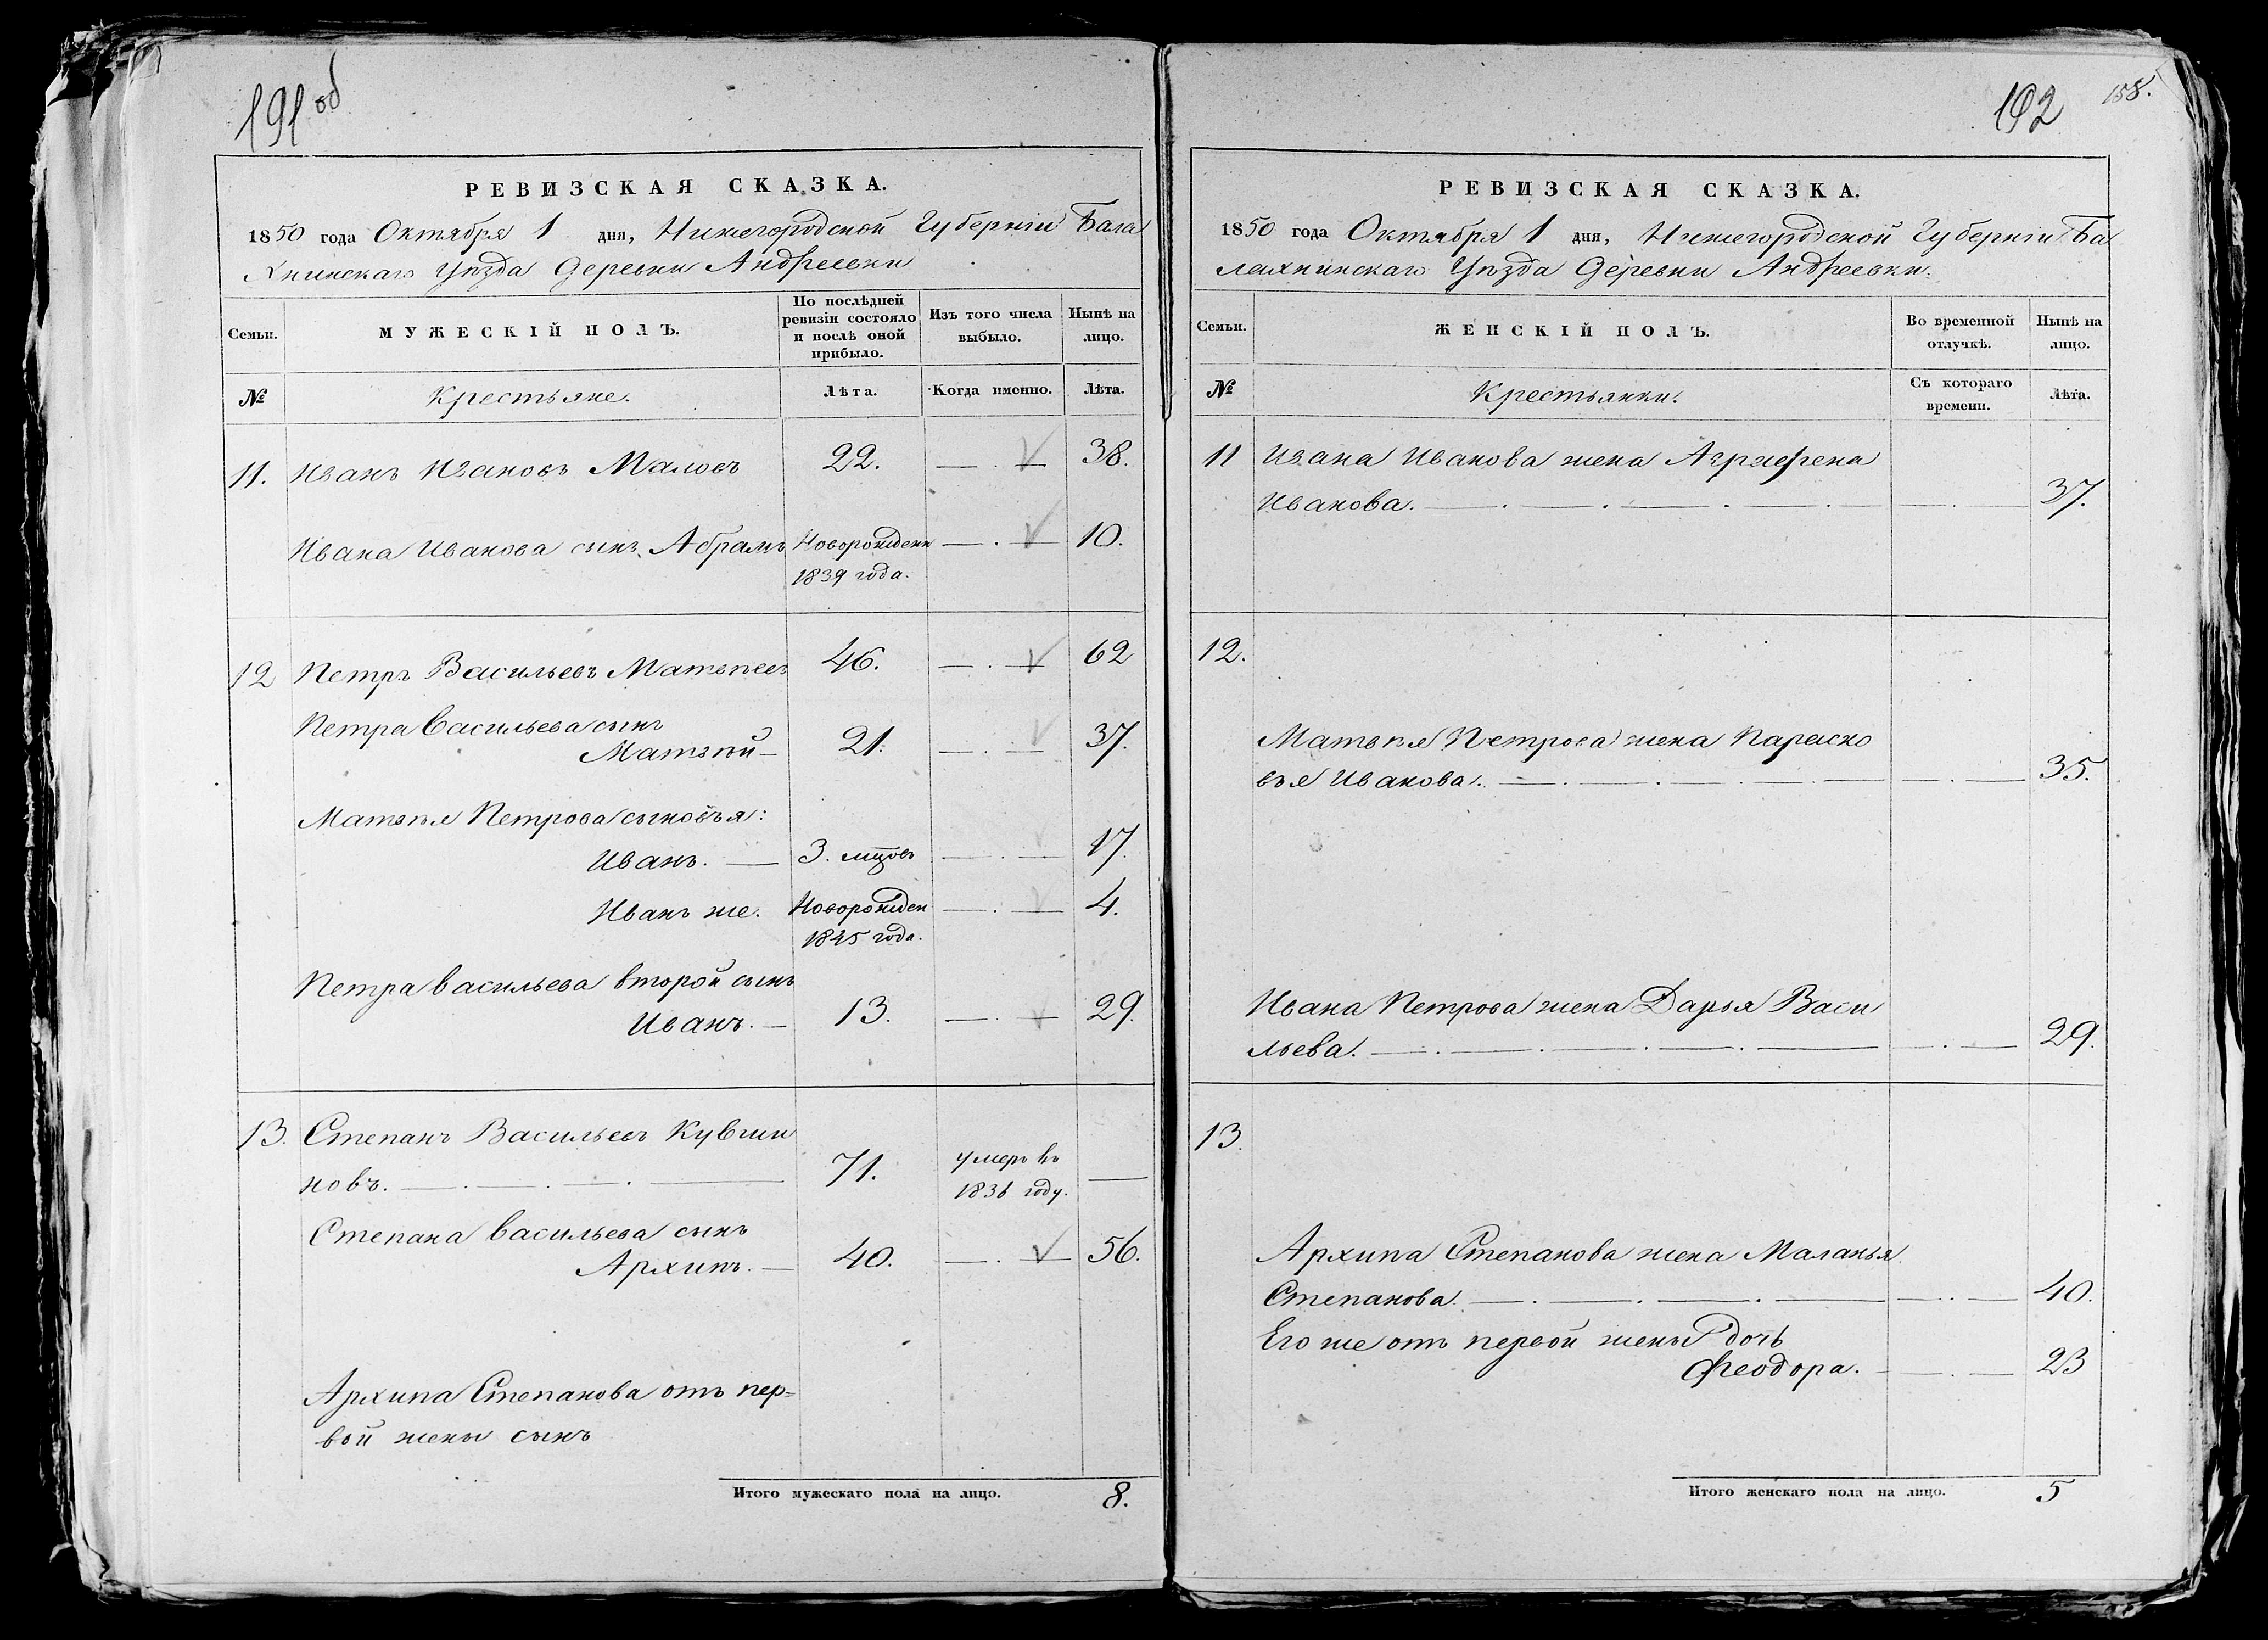 191 об
РЕВИЗСКАЯ СКАЗКА.
1850 года Октября 1 дня, Нижегородской Губернiи Бала
хнинскаго Уѣзда Деревни Андреевки
Семьи.
МУЖЕСКIЙ ПОЛЪ.
По послѣдней
ревизiи состояло
и послѣ оной
прибыло.
Изъ того числа
выбыло.
Нынѣ на
лицо.
№
Крестьяне.
Лѣта.
Когда именно.
Лѣта.
11. Иванъ Ивановъ Маловъ 22. 38.
Ивана Иванова сынъ Абрамъ Новорожденн 10.
1839 года.
12 Петръ Васильевъ Матвѣевъ 46. 62
Петра Васильева сынъ
Матвѣй 21. 37.
Матвѣя Петрова сыновья:
Иванъ. 3. мцовъ 17.
Иванъ же. Новорожден 4.
1845 года.
Петра Васильева второй сынъ
Иванъ. 13. 29.
13. Степанъ Васильевъ Кувши
новъ. 71. умеръ въ
1836 году.
Степана Васильева сынъ
Архипъ. 40. 56.
Архипа Степанова отъ пер=
вой жены сынъ
Итого мужескаго пола на лицо. 8.
192 158.
РЕВИЗСКАЯ СКАЗКА.
1850 года Октября 1 дня, Нижегородской Губернiи Ба
лахнинскаго Уѣзда Деревни Андреевки.
Семьи.
ЖЕНСКIЙ ПОЛЪ.
Во временной
отлучкѣ.
Нынѣ на
лицо.
№
Крестьянки.
Съ котораго
времени.
Лѣта.
11 Ивана Иванова жена Аграфена
Иванова. 37.
12.
Матвѣя Петрова жена Параско
вья Иванова. 35.
Ивана Петрова жена Дарья Васи
льева. 29.
13.
Архипа Степанова жена Маланья
Степанова. 40.
Его же отъ первой жены дочь
Феодора. 23
Итого женскаго пола на лицо. 5